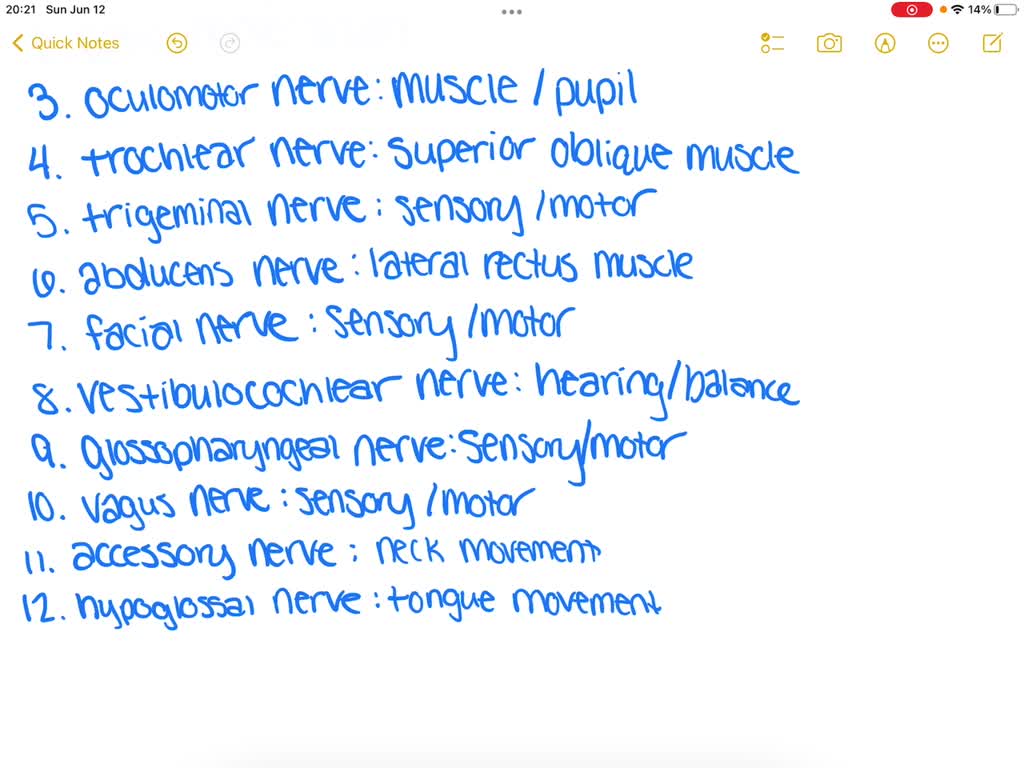 20:21 Sun Jun 12 14%
Quick Notes
3. oculomotor nerve: muscle / pupil
4. trochlear nerve: superior oblique muscle
5. trigeminal nerve: sensory / motor
6. abducens nerve: lateral rectus muscle
7. facial nerve: sensory / motor
8. vestibulocochlear nerve: hearing/balance
9. glossopharyngeal nerve: sensory/motor
10. vagus nerve: sensory / motor
11. accessory nerve: neck movement
12. hypoglossal nerve: tongue movement